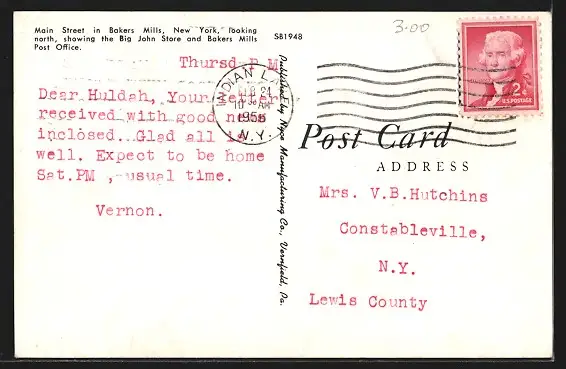 Main Street in Bakers Mills, New York, looking
north, showing the Big John Store and Bakers Mills
Post Office.
SB1948
3.00
Thursd P M
Dear Huldah, Your letter
received with good news
inclosed. Glad all is
well. Expect to be home
Sat.PM , usual time.
Vernon.
INDIAN
24
AM
N.Y.
Manufacturing Co.,
Published by
Pa.
2¢
U.S. POSTAGE
Post Card
ADDRESS
Mrs. V.B.Hutchins
Constableville,
N.Y.
Lewis County